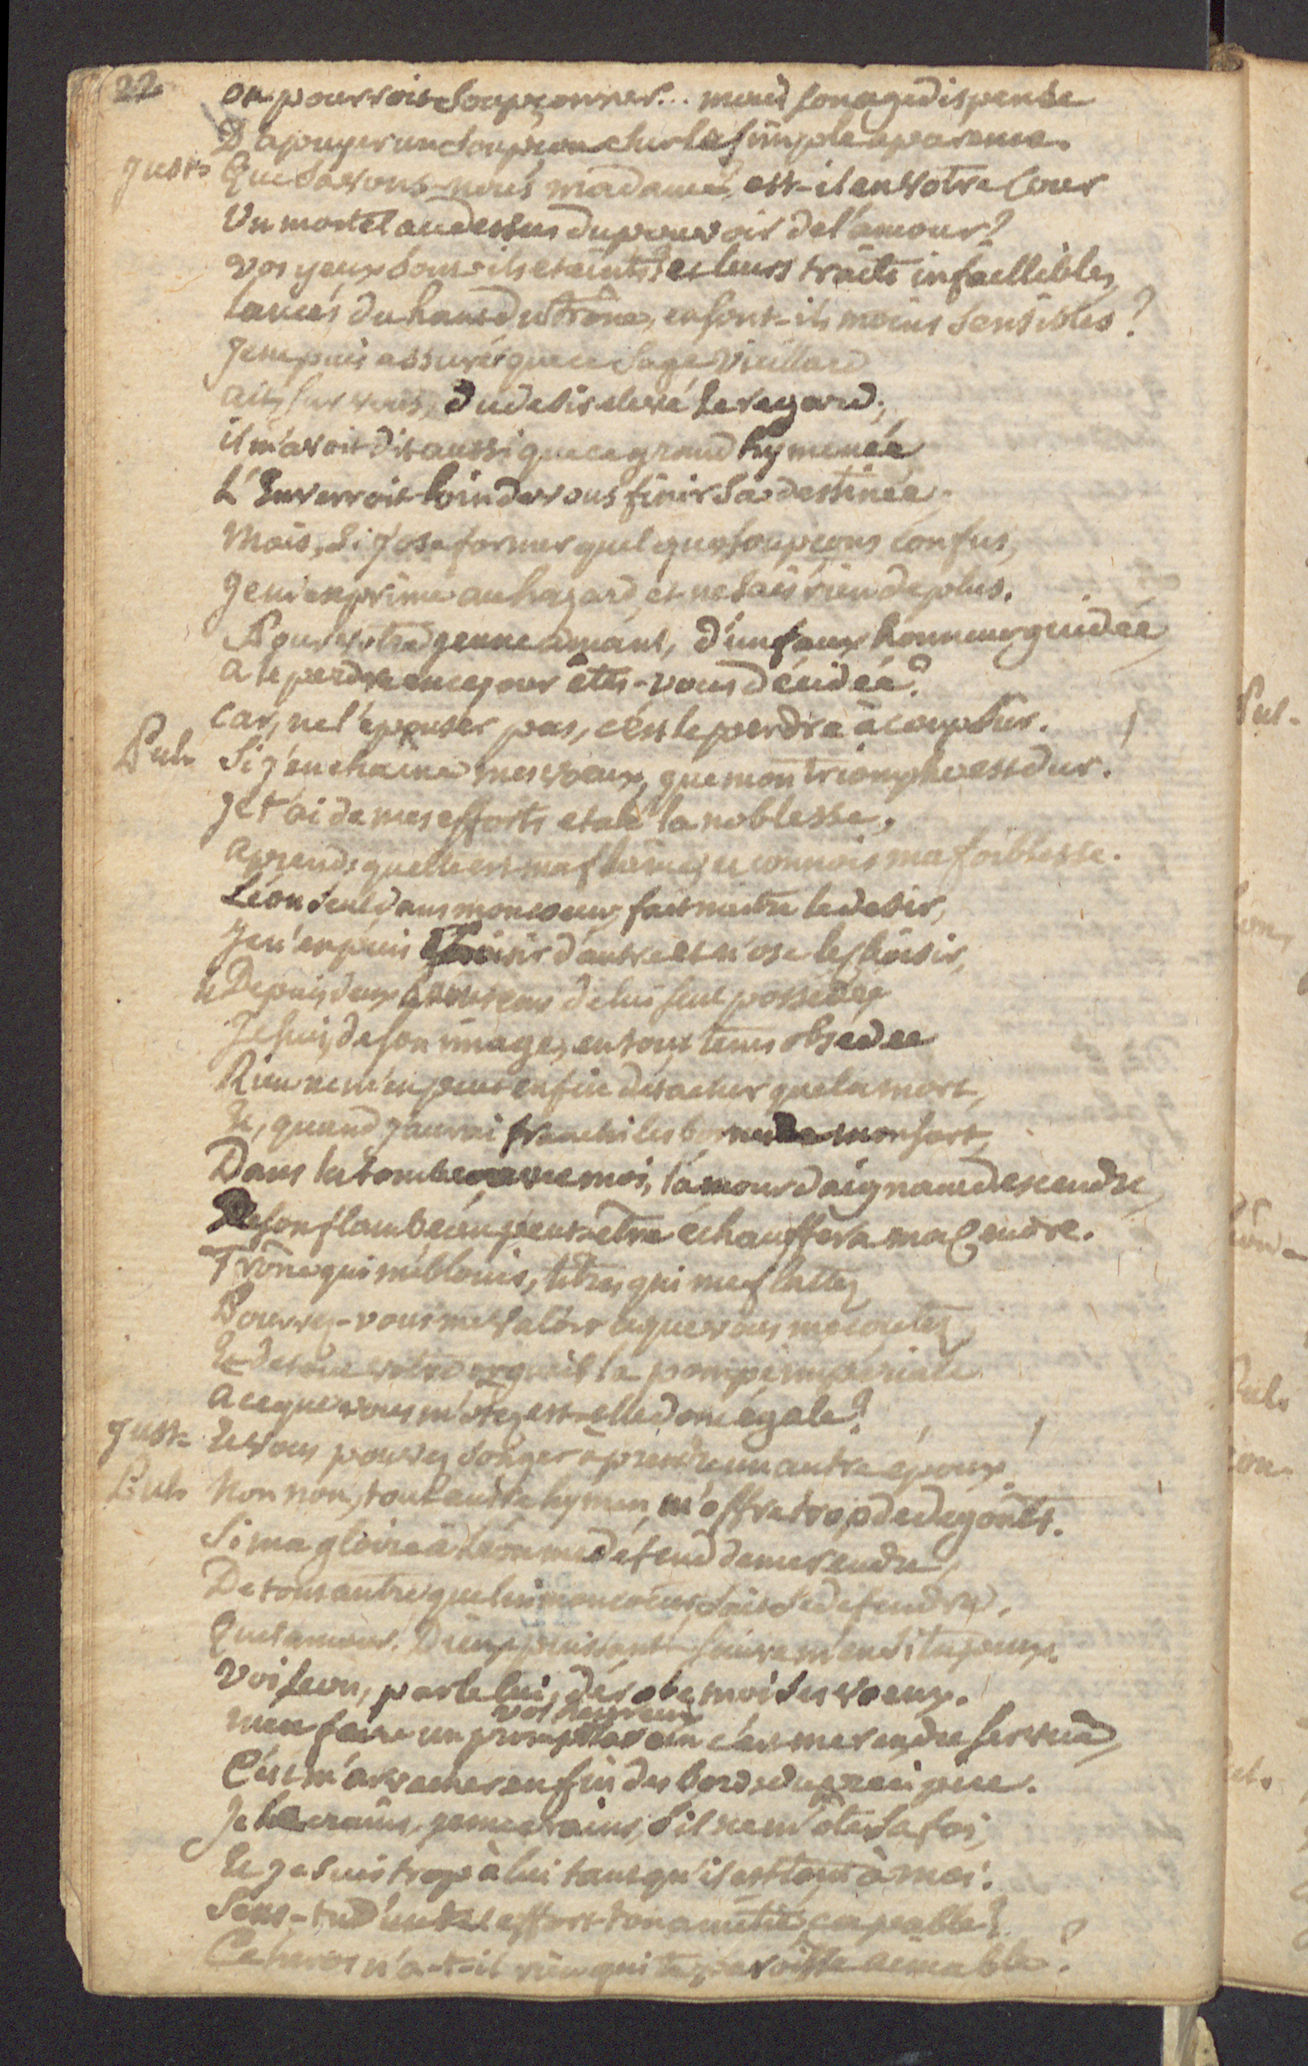 22
on pourroit soupçonner... mais son age dispense
D'apuyer un soupçon sur la simple aparence.
Just. Que savons-nous madame, est-il en votre Cour
Un mortel au dessus du pouvoir de l'amour?
vos yeux sont-ils eteints? et leurs traits infaillibles,
lancés du haut du trône, en sont-ils moins sensibles?
Je ne puis assurer que ce sage vieillard
ait sur vous, du desir elevé le regard;
il m'avoit dit aussi que ce grand hymenée
L'Enverroit loin de vous finir sa destinée.
Mais, si j'ose former quelques soupçons confus,
Je m'exprime au hazard, et ne sais rien de plus.
Pour votre jeune amant, d'un faux honneur guidée
a le perdre en ce jour êtes-vous décidée?
car, ne l'épouser pas, c'est le perdre à coup sûr.
Pul. Si j'enchaine mes voeux, que mon triomphe est dur.
Je t'ai de mes efforts etalé la noblesse,
aprends quelle est ma flâme, et connois ma foiblesse.
Léon seul dans mon coeur, fait naitre le desir,
Je n'en puis choisir d'autre et n'ose le choisir,
Depuis deux ans de lui seul possedée
Je suis, de son image, en tout tems obsedée
Rien ne m'en peut enfin detacher que la mort,
Et, quand j'aurai franchi les bornes de mon sort,
Dans la tombe avec moi, l'amour daignant descendre,
De son flambeau peut-être échauffera ma Cendre.
Trône qui m'éblouis, titres qui me flattez
Pouvez-vous me valoir ce que vous me coutez,
Et de tout votre orgueil la pompe imperiale
a ce que vous m'otez est-elle donc égale?
Just. Et vous pouvez songer à prendre un autre époux.
Pul. Non non, tout autre hymen, m'offre trop de degoûts.
Si ma gloire à Léon me défend de me rendre,
De tout autre que lui mon coeur sait se défendre.
Quel amour. Dieux puissant
Voi Leon, parle lui, dérobe moi ses voeux.
vos heureux
m'en faire un prompt larcin c'est me rendre service,
C'est m'arracher enfin des bords du precipice.
Je le crains, je me crains, s'il ne m'ôte sa foi,
Et je suis trop à lui tant qu'il est tout à moi.
Sens-tu d'un tel effort ton amitié capable?
Ce heros n'a-t-il rien qui te paroisse aimable?
Pul.